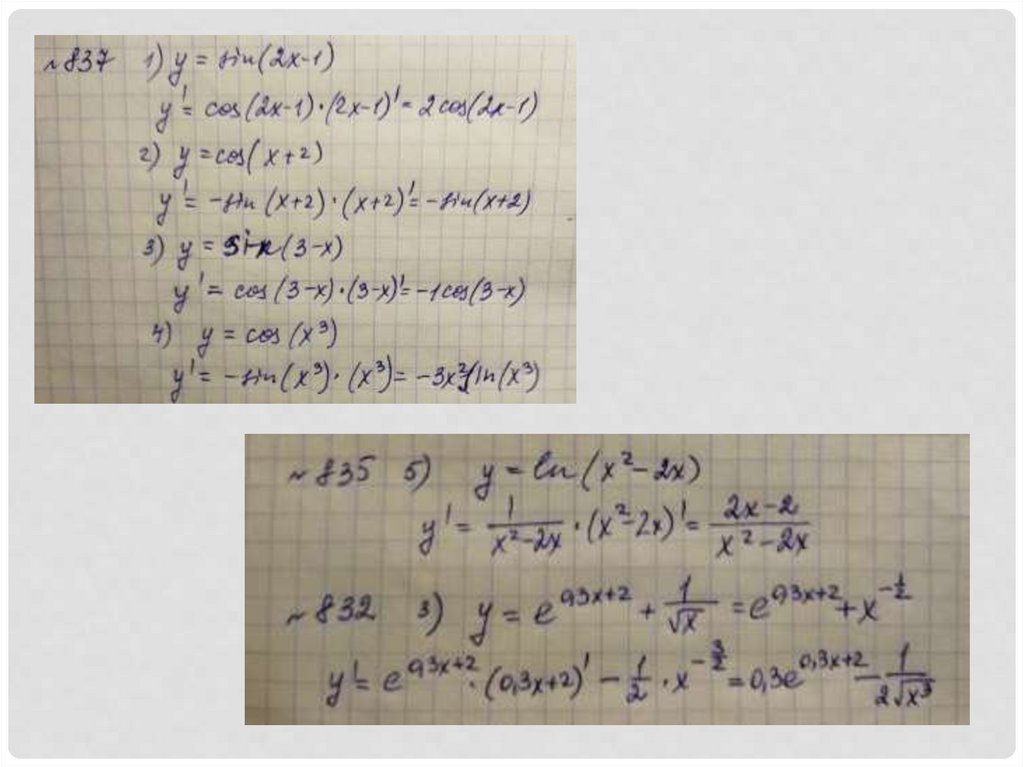 ~837 1) y = sin(2x-1)
y' = cos(2x-1)·(2x-1)' = 2cos(2x-1)
2) y = cos(x+2)
y' = -sin(x+2)·(x+2)' = -sin(x+2)
3) y = sin(3-x)
y' = cos(3-x)·(3-x)' = -1cos(3-x)
4) y = cos(x³)
y' = -sin(x³)·(x³) = -3x² sin(x³)
~835 5) y = ln(x²-2x)
y' = 1/(x²-2x) · (x²-2x)' = (2x-2)/(x²-2x)
~832 3) y = e^(0,3x+2) + 1/√x = e^(0,3x+2) + x^(-1/2)
y' = e^(0,3x+2) · (0,3x+2)' - 1/2 · x^(-3/2) = 0,3e^(0,3x+2) - 1/(2√x³)